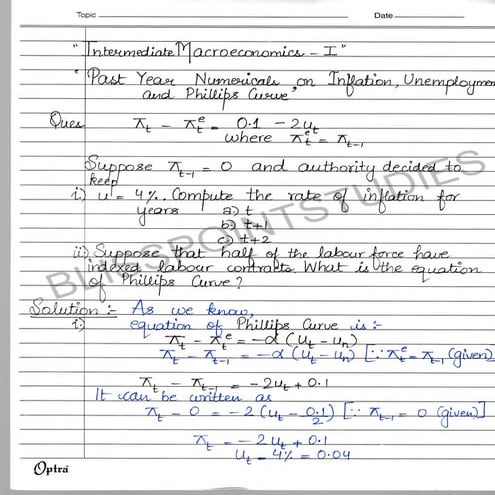 Topic
Date
"Intermediate Macroeconomics - I"
"Past Year Numericals on Inflation, Unemploymen
and Phillips Curve"
Ques πt - πt^e = 0.1 - 2ut
where πt^e = πt-1
Suppose πt-1 = 0 and authority decided to
keep
i) u = 4%. Compute the rate of inflation for
years a) t
b) t+1
c) t+2
ii) Suppose that half of the labour force have
indexed labour contracts. What is the equation
of Phillips Curve?
BLISSPOINTSTUDIES
Solution :- As we know,
i) equation of Phillips Curve is :-
πt - πt^e = -α (ut - un)
πt - πt-1 = -α (ut - un) [∵ πt^e = πt-1 (given)
πt - πt-1 = -2ut + 0.1
It can be written as
πt - 0 = -2 (ut - 0.1/2) [∵ πt-1 = 0 (given)]
πt = -2ut + 0.1
ut = 4% = 0.04
Optra